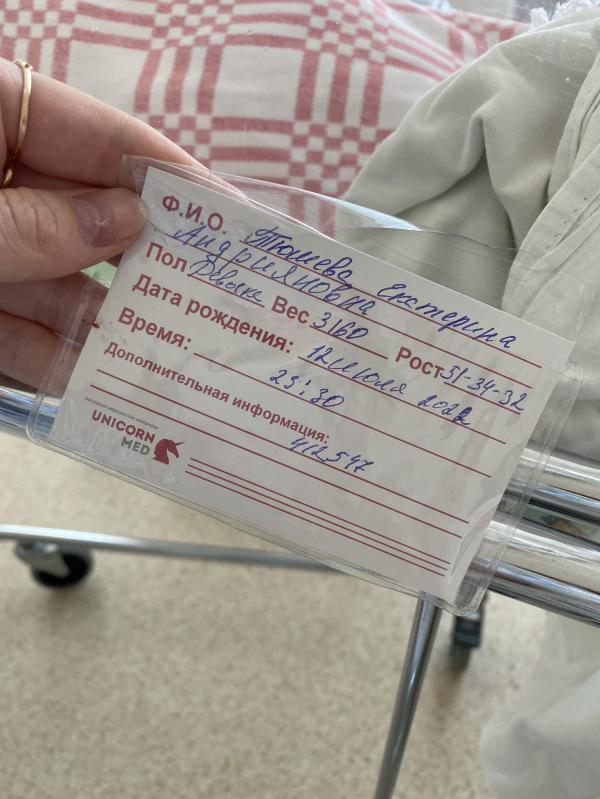 Ф.И.О. Тюшева Екатерина
Андрияновна
Пол Девочка Вес 3160 Рост 51-34-32
Дата рождения: 12 июля 2022
Время: 23:30
Дополнительная информация:
412547
расходные медицинские материалы
UNICORN
MED